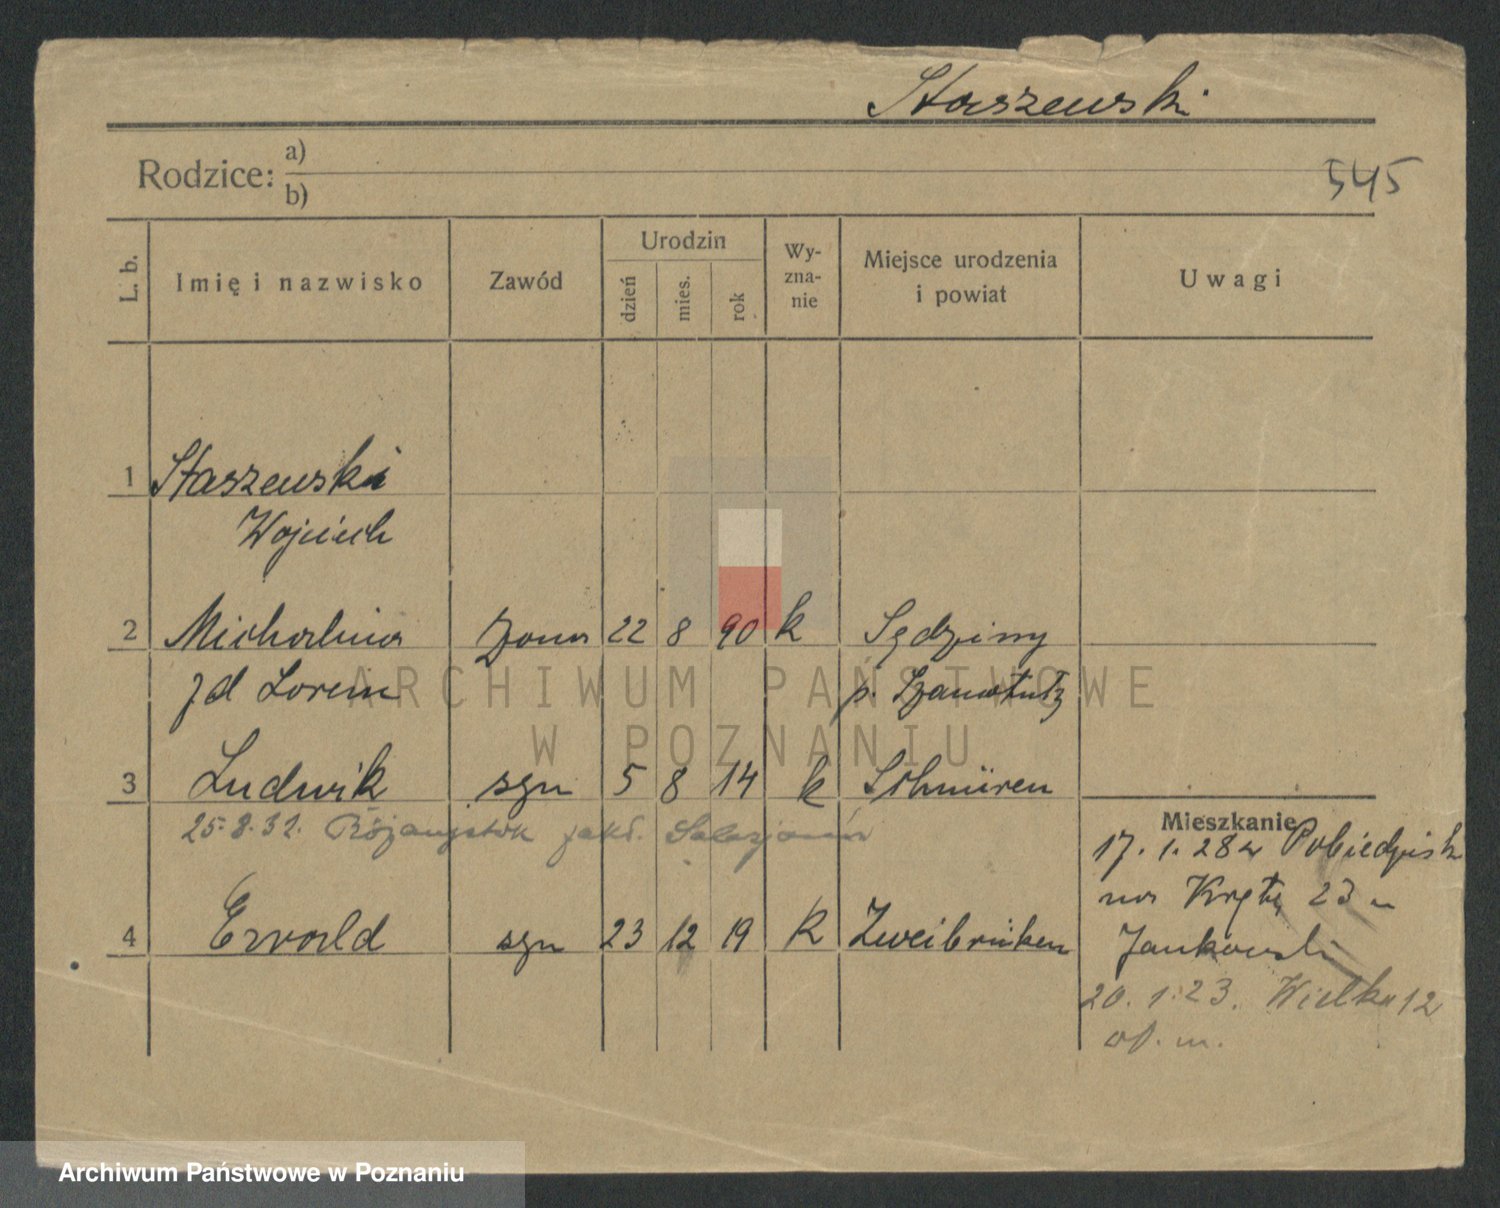 Staszewski
Rodzice: a)
b)
545
L. b. Imię i nazwisko Zawód Urodzin dzień mies. rok Wy-zna-nie Miejsce urodzenia i powiat Uwagi
1 Staszewski
Wojciech
2 Michalina żona 22 8 90 k Sędziny
zd Lorem p. Szamotuły
3 Ludwik syn 5 8 14 k Schmüren
25.8.32. Różanystok zakł. Salezjanów
Mieszkanie
17. 1. 28 z Pobiedzisk
na Krętą 23 u
4 Ewald syn 23 12 19 k Zweibrücken
Jankowski
20. 1. 23. Wielka 12
ARCHIWUM PAŃSTWOWE
W POZNANIU
Archiwum Państwowe w Poznaniu